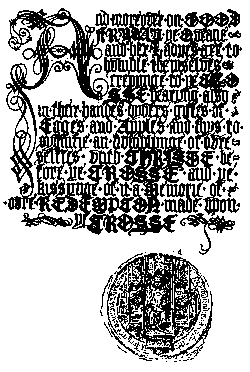 And moreover on GOOD
FRIDAY ye Queane
and her Ladyes are to
humble themselves
creepinge to ye CRO
SSE bearing also
in their handes divers giftes of
Egges and Apples and thus to
signifie an of ore
selfes. CHRISTE be=
fore ye CROSSE and ye
kissynge of it a Memorie of
ore REDEMPTON made upon
ye CROSSE